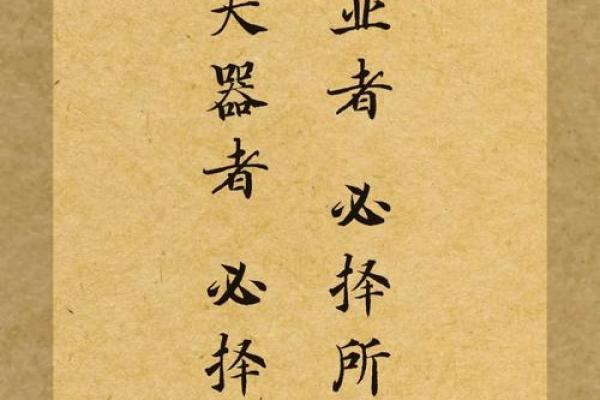 业者 必择所
大器者 必择